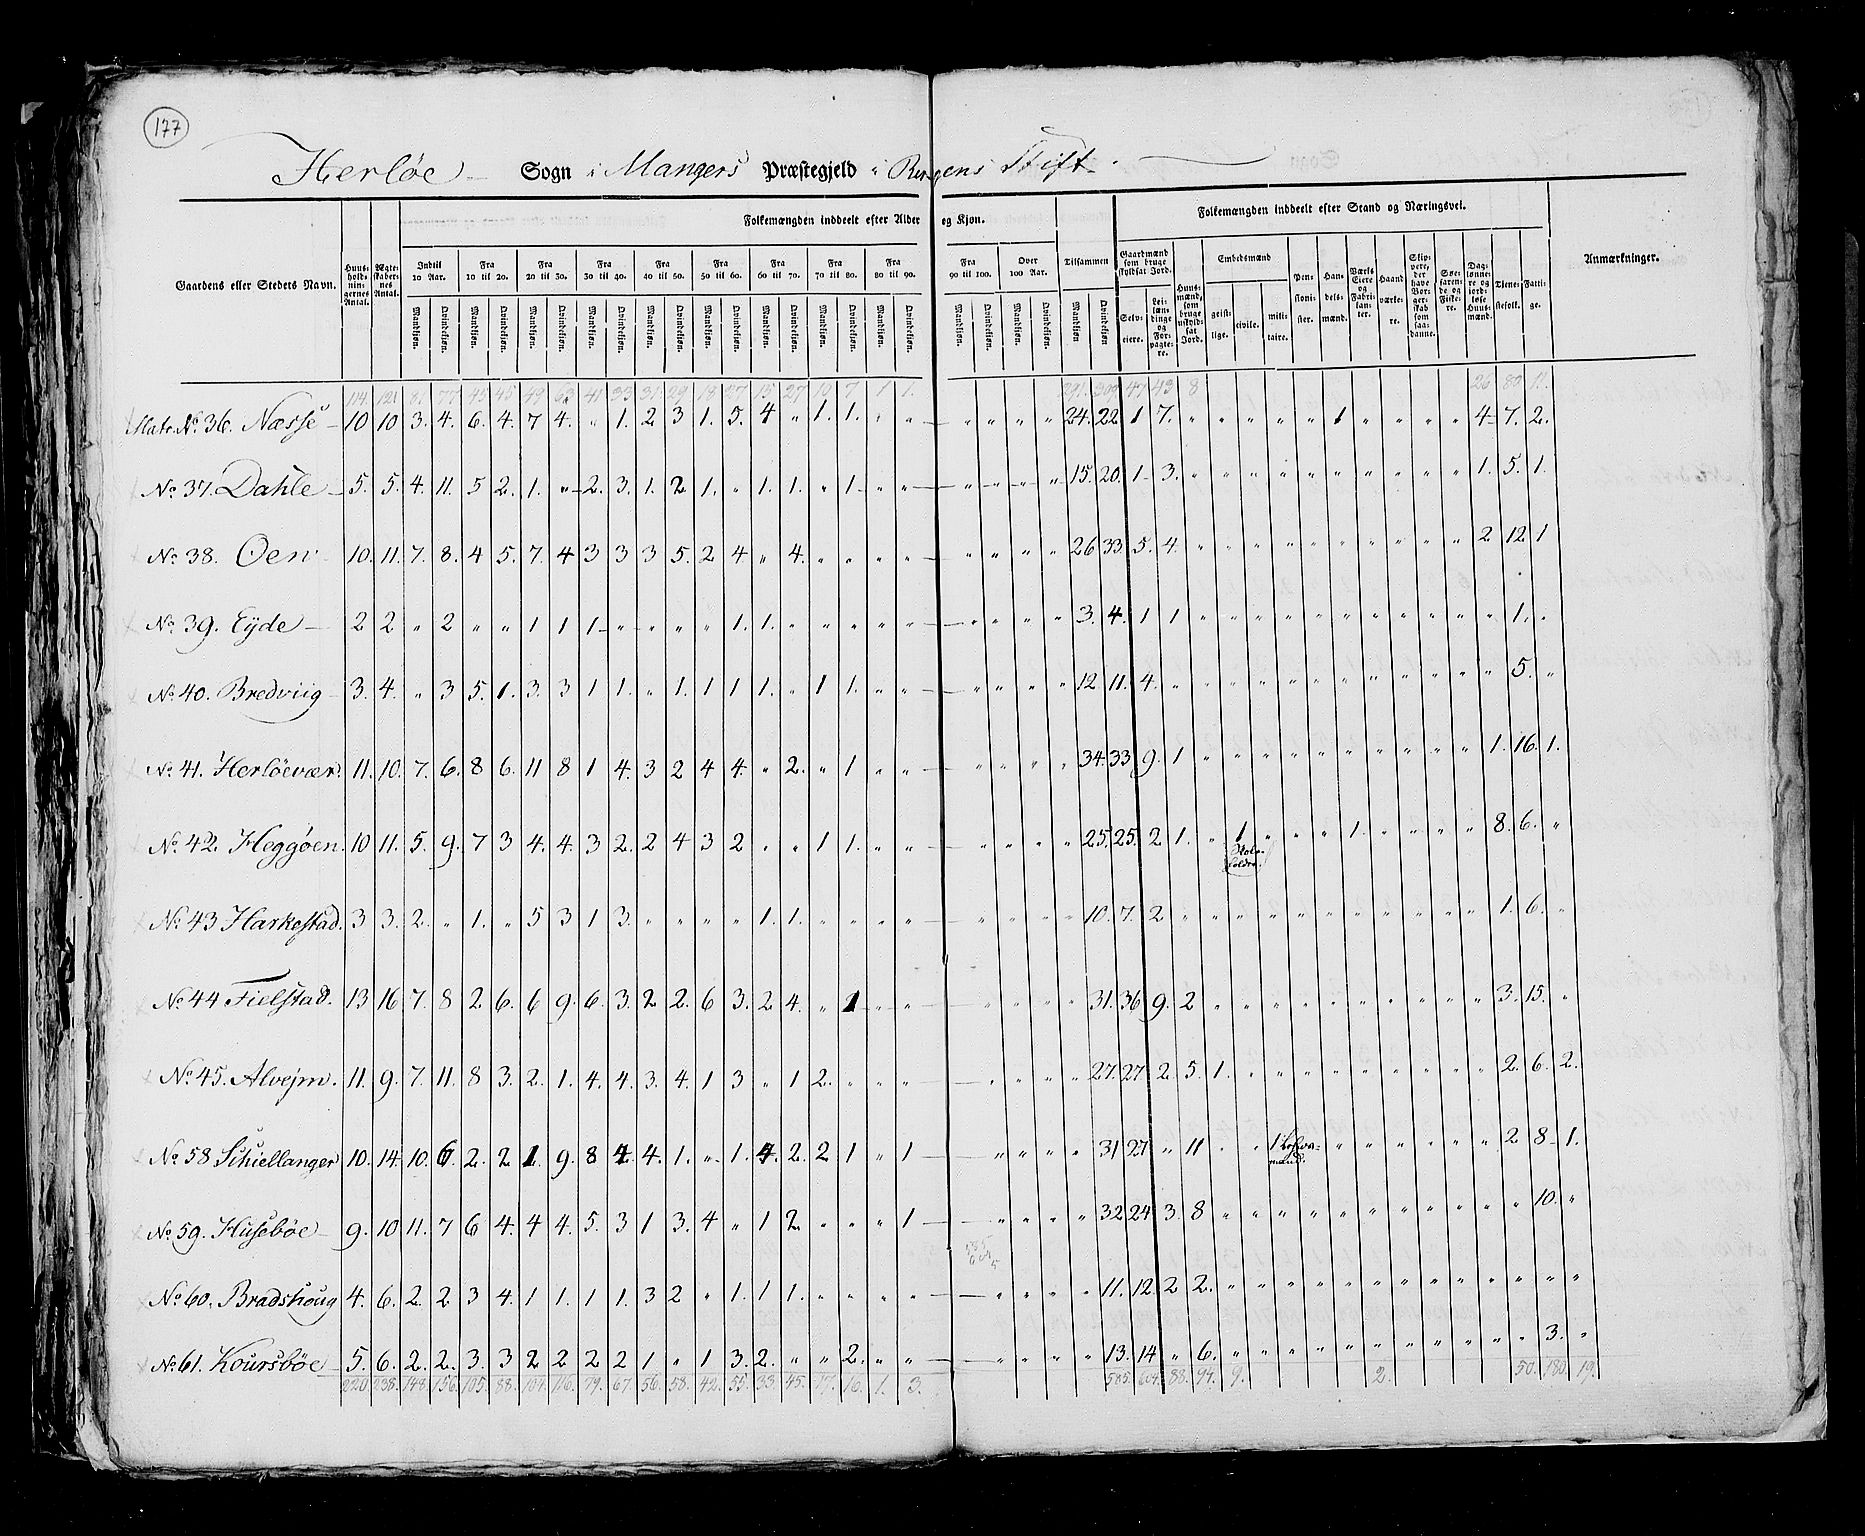 177
Herløe Sogn i Mangers Præstegjeld i Bergens Stift.
Gaardens eller Stedets Navn. Huus-holdnin-gernes Antal. Ægte-skaber-nes Antal. Folkemængden inddeelt efter Alder og Kjøn. Tilsammen Folkemængden inddeelt efter Stand og Næringsvei. Anmærkninger.
Indtil 10 Aar. Fra 10 til 20. Fra 20 til 30. Fra 30 til 40. Fra 40 til 50. Fra 50 til 60. Fra 60 til 70. Fra 70 til 80. Fra 80 til 90. Fra 90 til 100. Over 100 Aar.
Mandkjøn. Qvindekjøn. Mandkjøn. Qvindekjøn. Mandkjøn. Qvindekjøn. Mandkjøn. Qvindekjøn. Mandkjøn. Qvindekjøn. Mandkjøn. Qvindekjøn. Mandkjøn. Qvindekjøn. Mandkjøn. Qvindekjøn. Mandkjøn. Qvindekjøn. Mandkjøn. Qvindekjøn. Mandkjøn. Qvindekjøn. Mandkjøn Qvindekjøn
Gaardmænd som bruge skyldsat Jord. Selv-eiere. Lei-læn-dinge og For-pagte-re. Huus-mænd, som bruge uskyld-sat Jord. Embedsmænd geist-lige. civile. mili-taire. Pen-sioni-ster. Han-dels-mænd. Værks Eiere og Fabri-kan-ter. Haand værke-re. Søe-farende og Fiske-re. Dag-lønne-re og jord-løse Huus-mænd. Tiene-stefolk. Fatti-ge.
114. 121 81. 77. 45 45 49 63 41 33 31. 29 18 27 15 27 10 7 1 1. 291. 309 47 43 8 26 80 12
Matr. No. 36. Næsse 10 10 3. 4. 6. 4. 7 4. " 1. 2 3 1. 5. 4 " 1. 1. " " " " " " 24. 22 1 7. " " " " " " 1 " " " " 4 7. 2.
No. 37. Dahle 5. 5. 4. 11. 5 2. 1. " 2. 3. 1. 2 1. " 1. 1. " 1 " " " " " " 15. 20. 1 3. " " " " " " " " " " " 1. 5. 1.
No. 38. Oen 10. 11. 7. 8. 4 5. 7. 4 3 3 3 5. 2 4. " 4. " " " " " " " " 26 33 5. 4. " " " " " " " " " " " 2 12 1
No. 39. Eyde 2 2 " 2 " " 1 1 1 " " " " 1. 1. " " " " " " " " " 3. 4. 1 1 " " " " " " " " " " " " 1. "
No. 40. Bredviig 3. 4. " 3 5. 1. 3. 3 1 1. " 1. 1 1 1. " 1 1. " " " " " " 12 11. 4. " " " " " " " " " " " " " 5. "
No. 41. Herløevær. 11. 10. 7. 6. 8 6. 11 8 1 4. 3 2 4 4. " 2. " 1 " " " " " " 34. 33 9. 1 " " " " " " " " " " " 1. 16. 1.
No. 42. Heggøen. 10 11. 5. 9. 7 3 4. 4. 3 2. 2 4 3 2 " " 1 1. " " " " " " 25. 25. 2 1. " 1 Skole-holder. " " " " 1. " " " " 8. 6. "
No. 43 Harkestad. 3 3. 2. " 1. " 5 3 1 3. " " " " 1. 1. " " " " " " " " 10. 7. 2 " " " " " " " " " " " " 1. 6. "
No. 44 Fielstad. 13 16 7. 8 2 6. 6 9. 6. 3. 2 2. 6 3. 2 4. " 1 " " " " " " 31. 36 9. 2 " " " " " " " " " " " 3. 15. "
No. 45. Alvejm. 11. 9. 7. 11. 8 3. 2. 1. 4. 4. 3. 4. 1 3 " 1 2. " " " " " " " 27. 27 2. 5. 1. " " " " " " " " " " 2. 6. 2.
No. 58 Schiellanger 10. 14. 10. 6. 2. 2 1 9. 8 4. 4. 1. " 1. 4. 2. 2 1 " 1 " " " " 31 27 " 11 " " 1 " " " " " " " " 2 8 1.
No. 59. Husebøe 9. 10 11. 7 6 4. 4 4. 5. 3 1 3. 4 " 1 2 " " " 1 " " " " 32 24 3. 8 " " " " " " " " " " " " 10. "
585
604
No. 60. Bradshoug 4. 6. 2. 2 3 4. 1 1. 1 1. 3 2 " 1. 1 1. " " " " " " " " 11. 12. 2 2. " " " " " " " " " " " " " "
No. 61. Koursbøe 5. 6. 2. 2. 3. 3 2 2 2 2 1 " 1 3. 2. " " 2. " " " " " " 13. 14 " 6. " " " " " " " " " " " " 3. "
220. 238. 148. 156. 105. 88. 104. 116. 79. 67. 56. 58. 42. 55. 33. 45. 17. 16. 1. 3. 585. 604. 88. 94. 9. 2. 50. 180. 19.